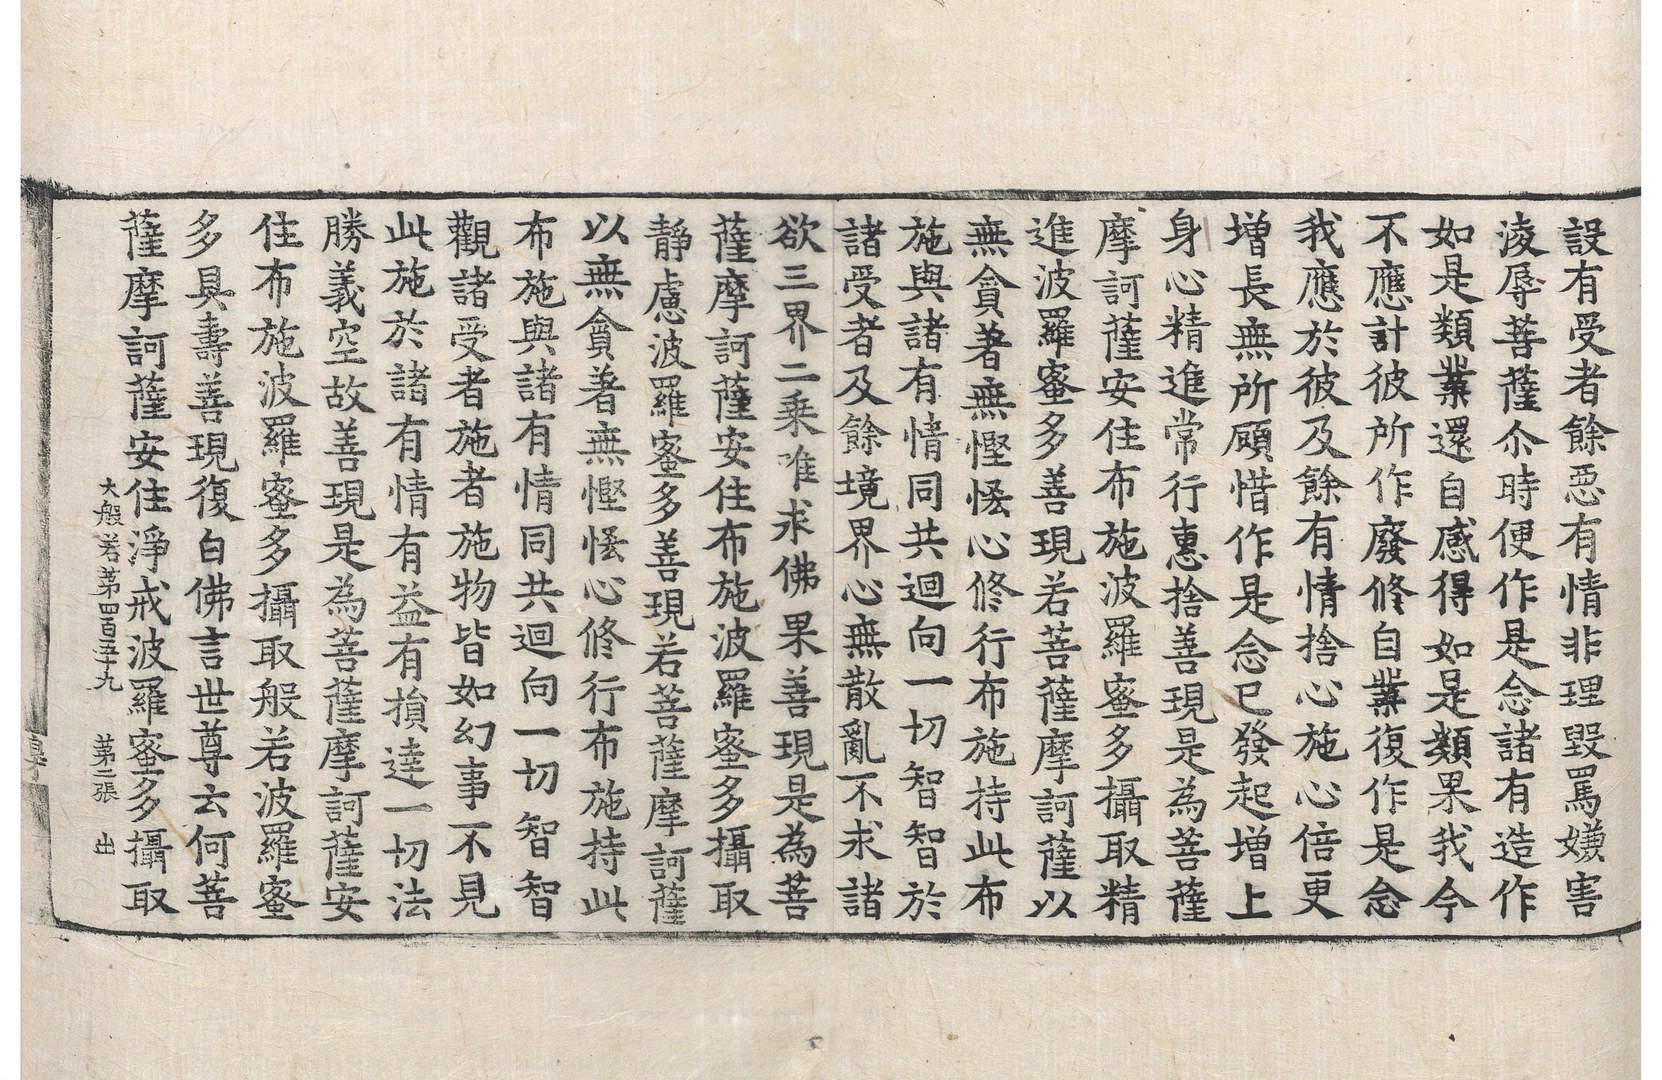 設有受者餘惡有情非理毀罵嫌害
淩辱菩薩尒時便作是念諸有造作
如是類業還自感得如是類果我今
不應計彼所作廢修自業復作是念
我應於彼及餘有情捨心施心倍更
增長無所顧惜作是念已發起增上
身心精進常行惠捨善現是為菩薩
摩訶薩安住布施波羅蜜多攝取精
進波羅蜜多善現若菩薩摩訶薩以
無貪著無慳悋心修行布施持此布
施與諸有情同共迴向一切智智於
諸受者及餘境界心無散亂不求諸
欲三界二乘唯求佛果善現是為菩
薩摩訶薩安住布施波羅蜜多攝取
靜慮波羅蜜多善現若菩薩摩訶薩
以無貪著無慳悋心修行布施持此
布施與諸有情同共迴向一切智智
觀諸受者施者施物皆如幻事不見
此施於諸有情有益有損達一切法
勝義空故善現是為菩薩摩訶薩安
住布施波羅蜜多攝取般若波羅蜜
多具壽善現復白佛言世尊云何菩
薩摩訶薩安住淨戒波羅蜜多攝取
大般若第四百五十九 第二張 出